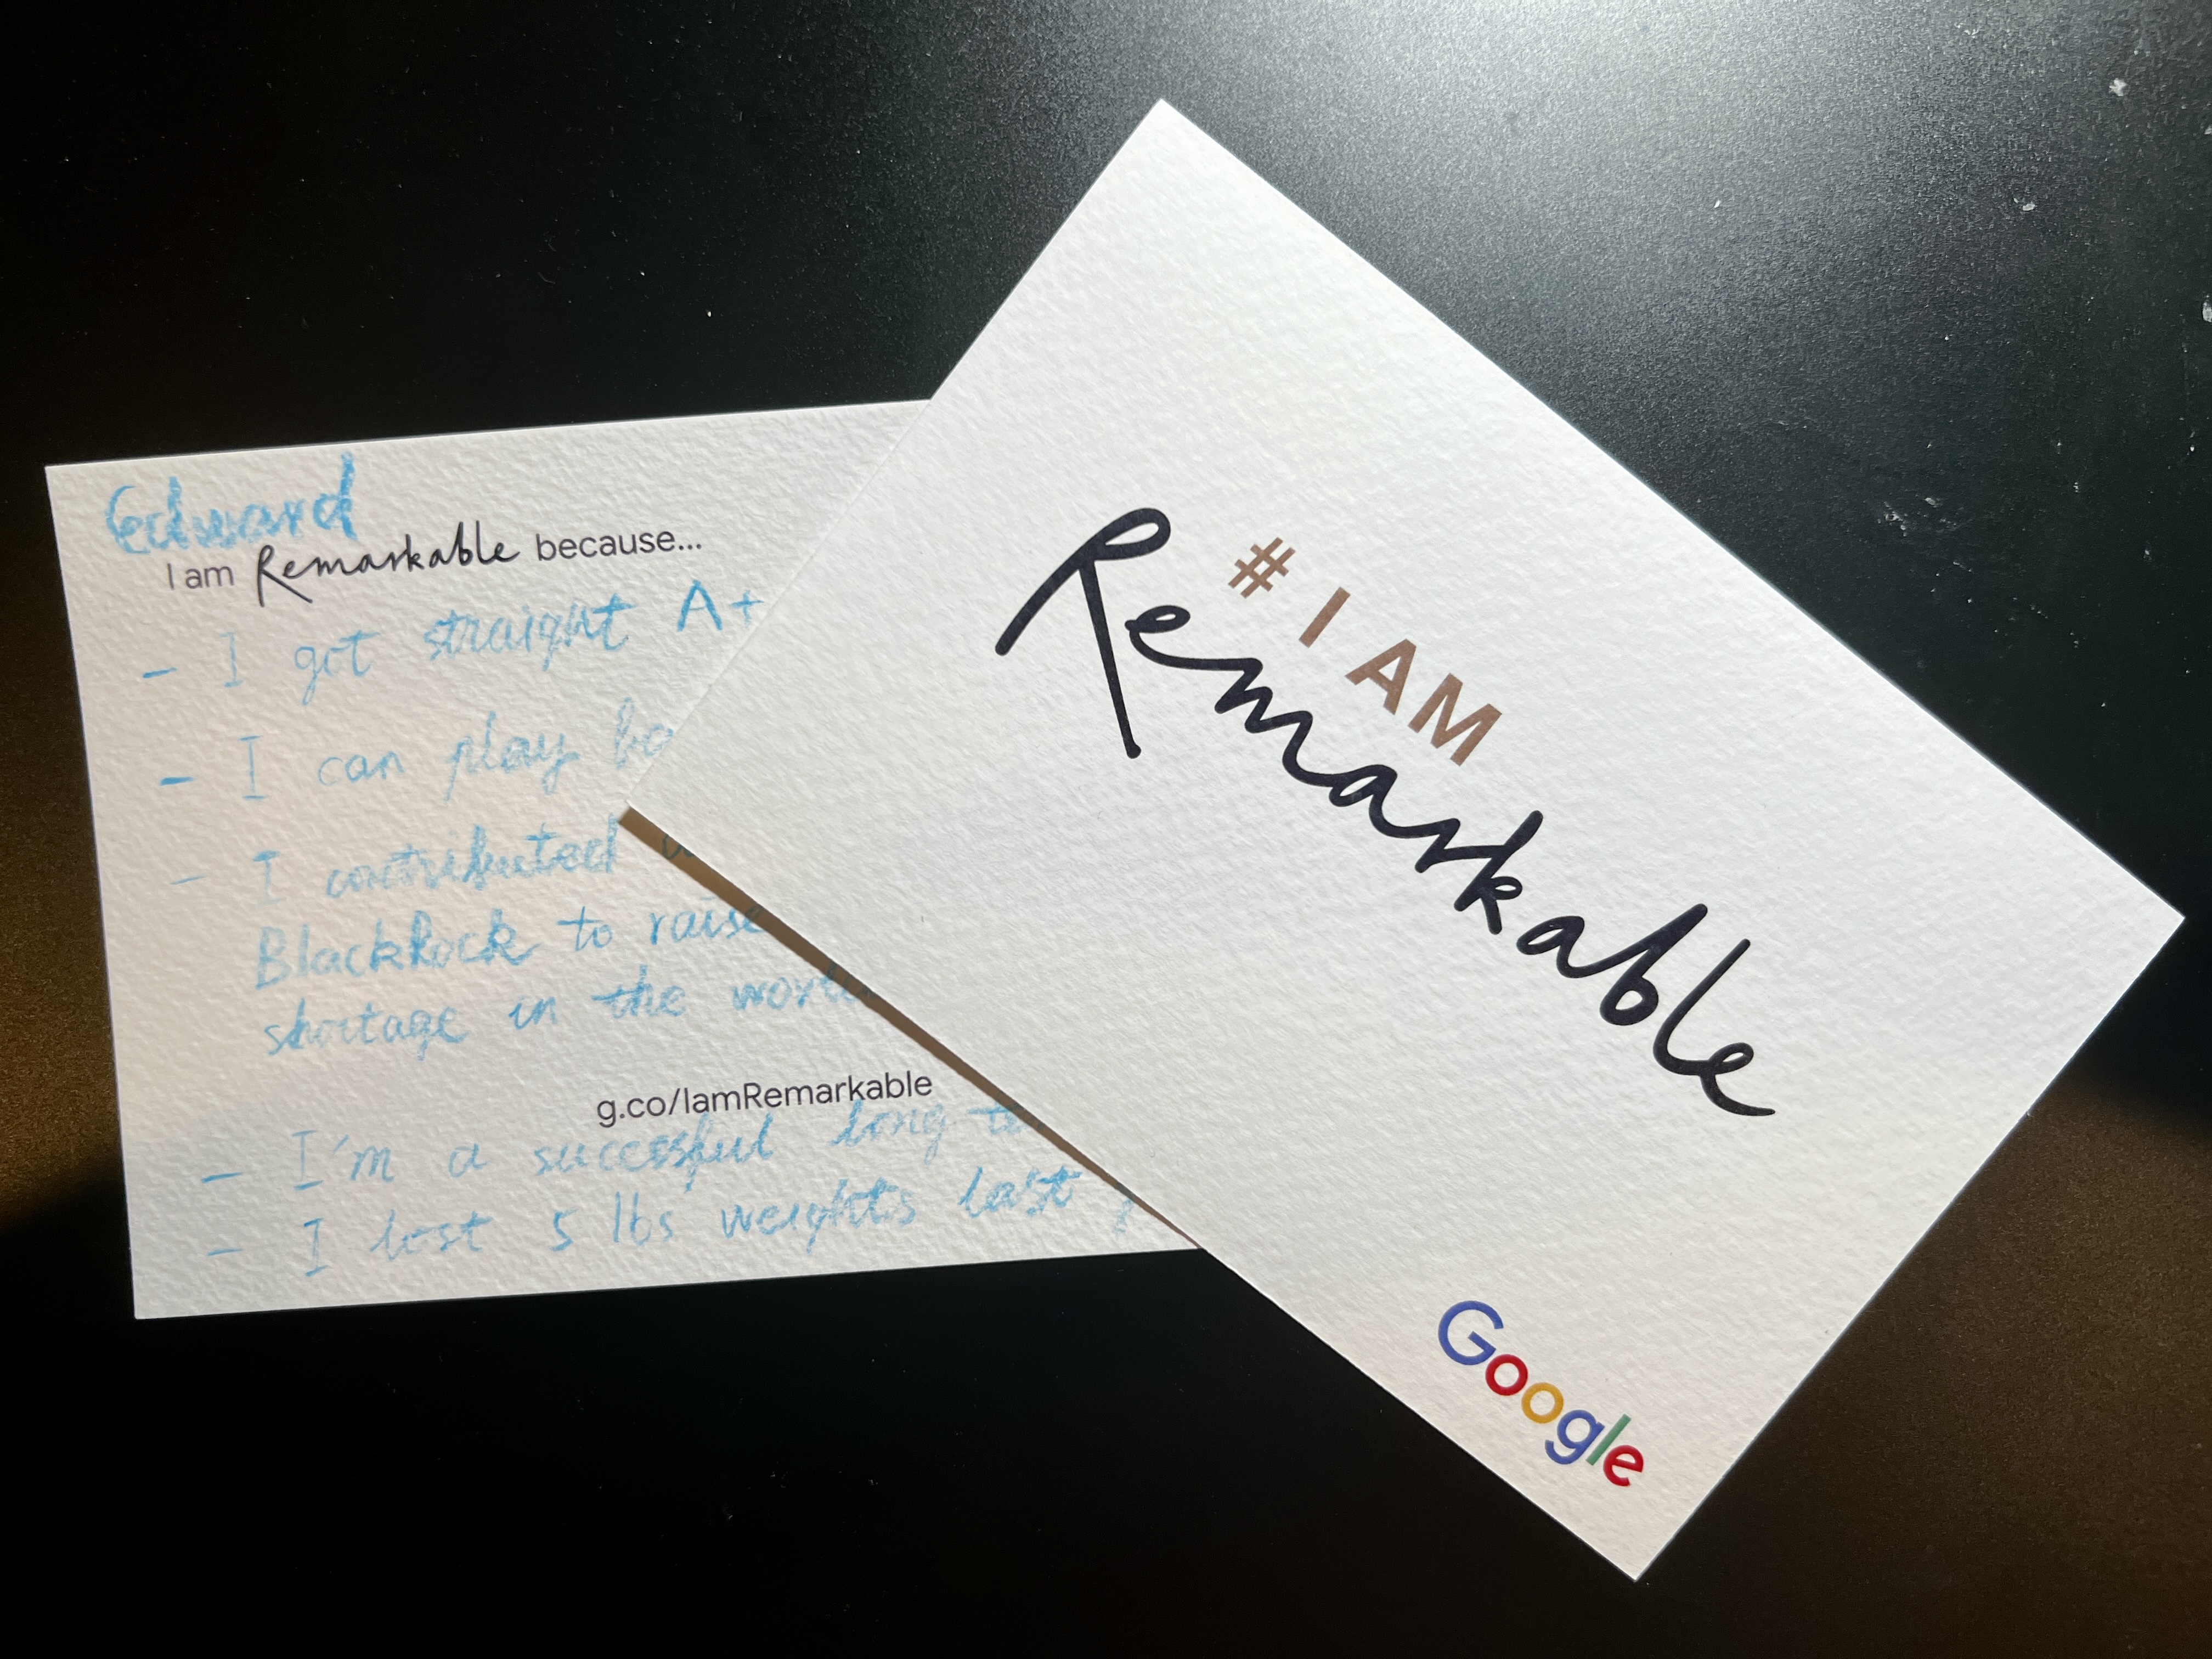 Edward
I am Remarkable because...
- I got straight A+
- I can play
- I contributed
BlackRock to raise
shortage in the
g.co/IamRemarkable
- I'm a successful long
- I lost 5 lbs weights last
# I AM
Remarkable
Google